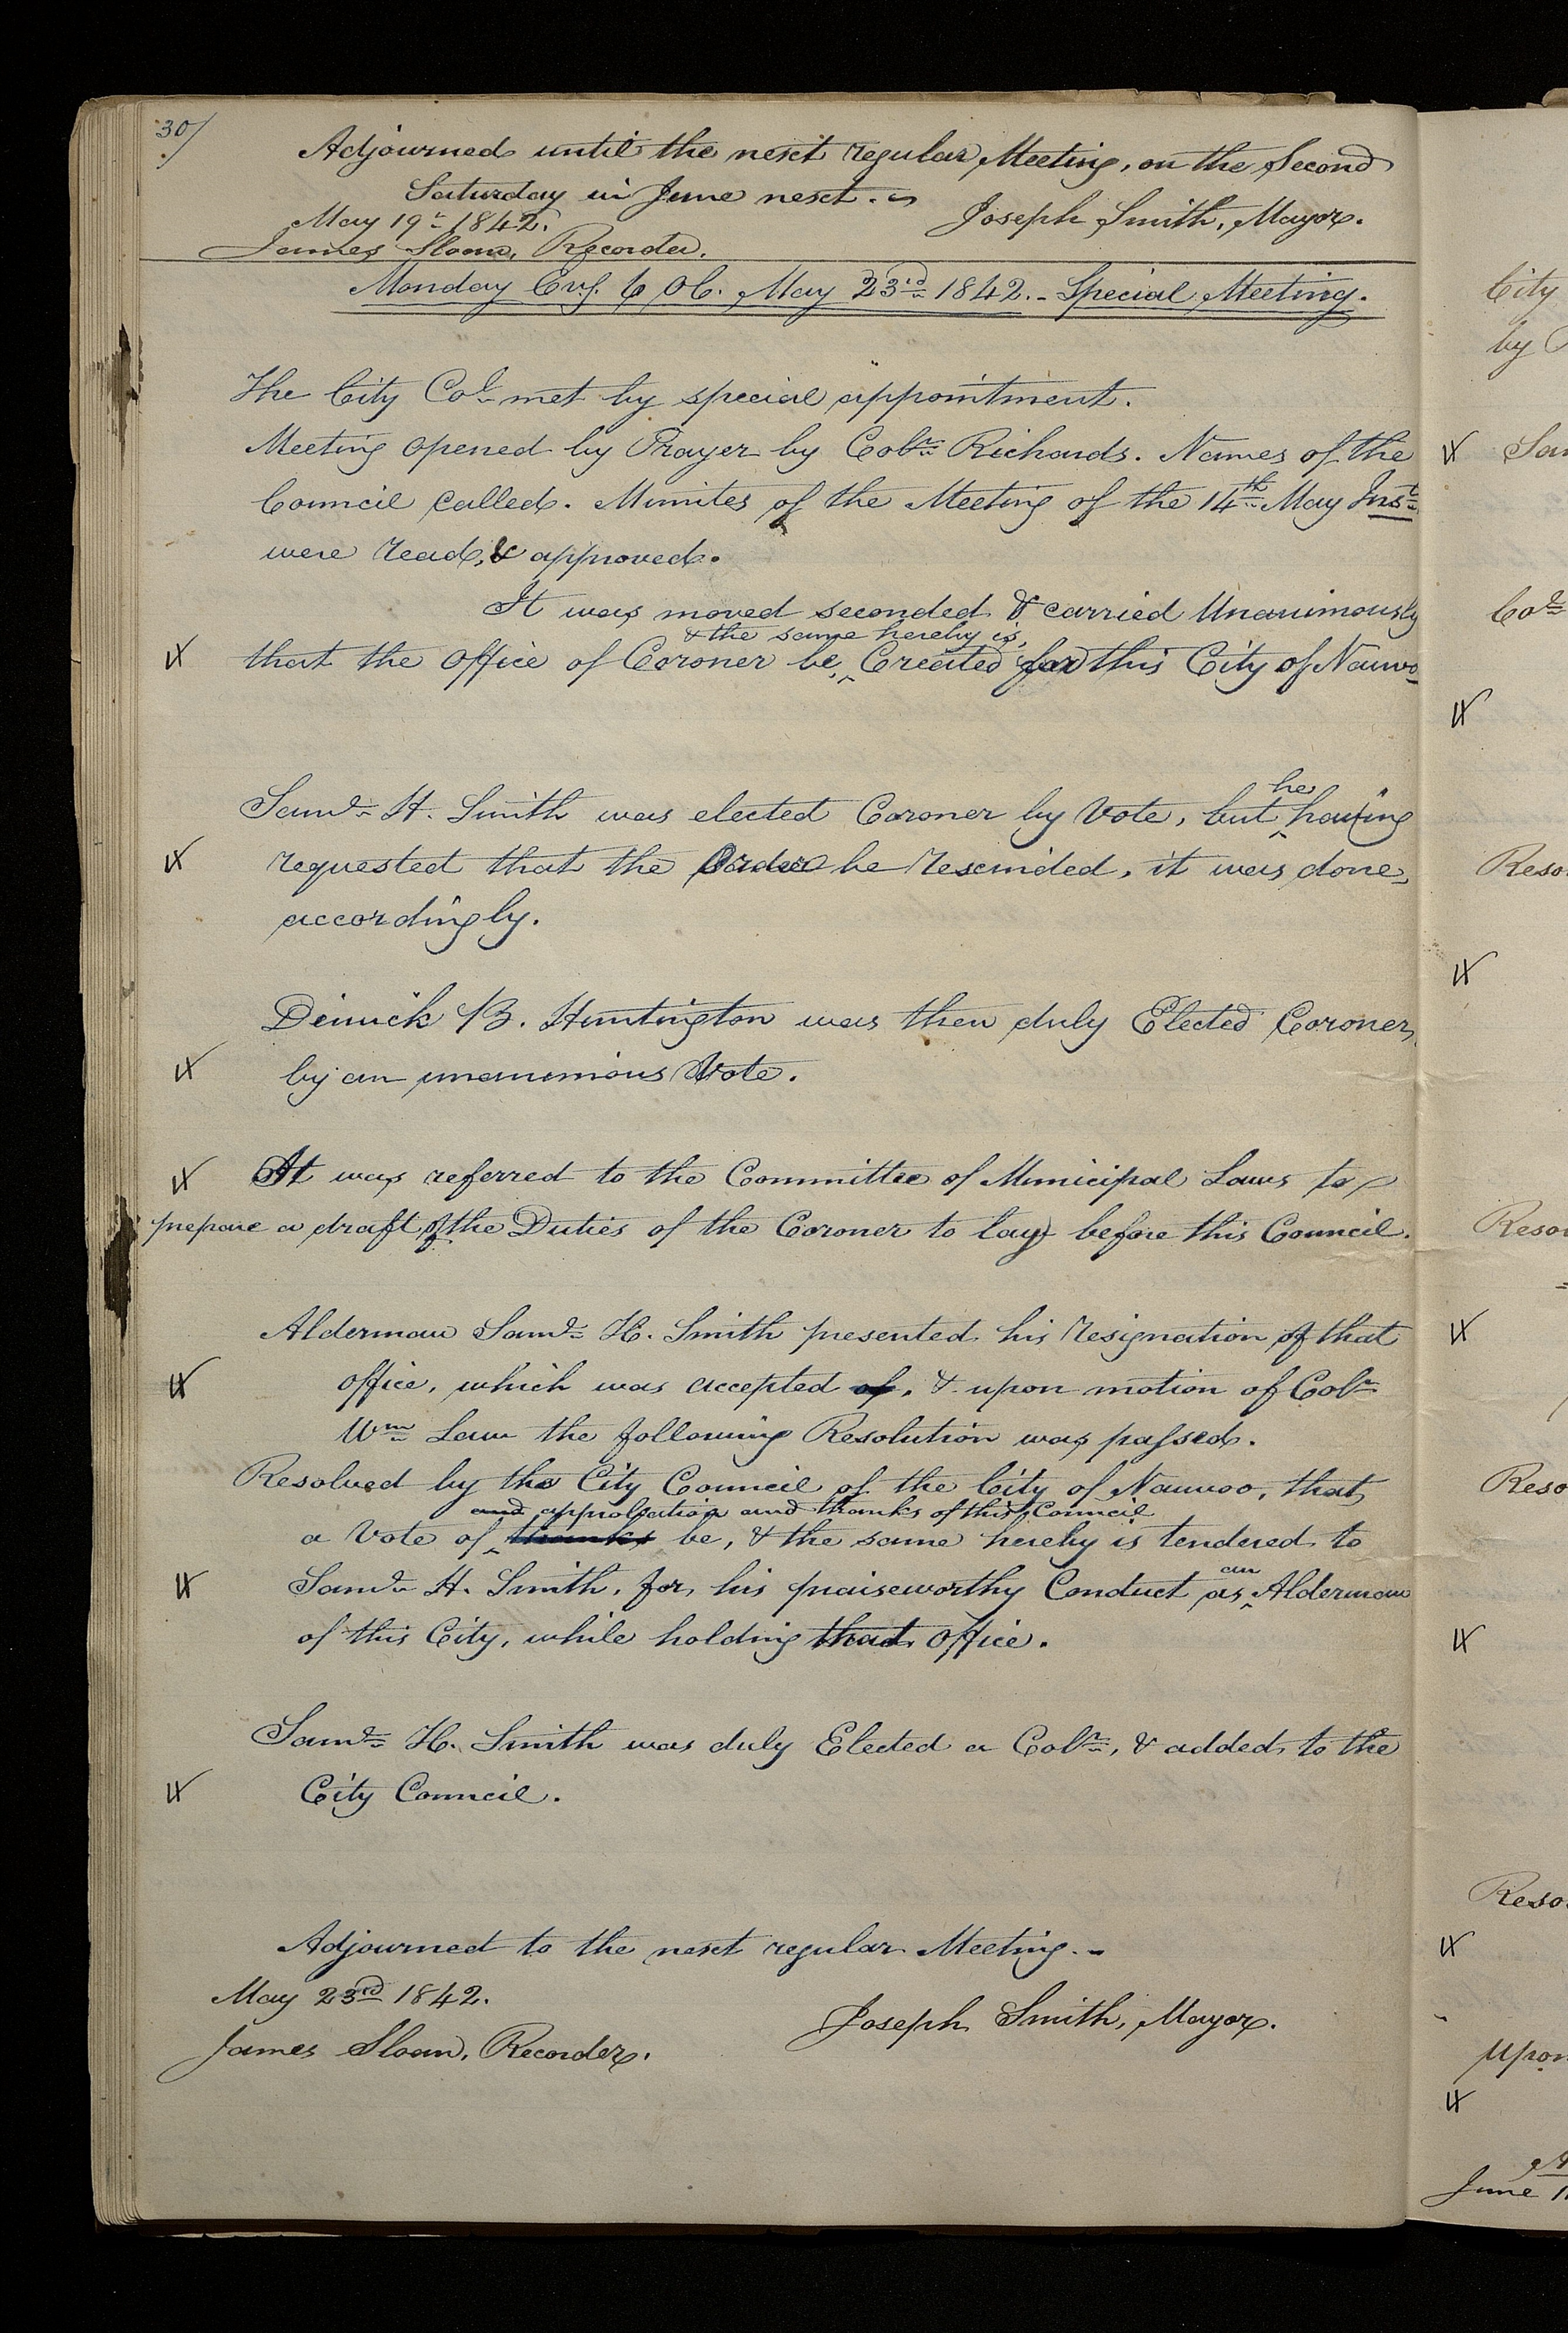 30/
Adjourned until the next regular Meeting, on the Second
Saturday in June next.
May 19th 1842. Joseph Smith, Mayor.
James Sloan, Recorder.
Monday Evg. 6 OC. May 23rd 1842. - Special Meeting.
The City Col met by special appointment.
Meeting opened by Prayer by Colr Richards. Names of the
Council called. Minutes of the Meeting of the 14th May Inst
were read, & approved.
It was moved seconded & carried Unanimously
& the same hereby is,
that the office of Coroner be, ^ Created for this City of Nauvoo
he
Saml H. Smith was elected Coroner by Vote, but ^ having
requested that the Order be rescinded, it was done
accordingly.
Dimick B. Huntington was then duly Elected Coroner
by an unanimous Vote.
It was referred to the Committee of Municipal Laws to
prepare a draft of the Duties of the Coroner to lay before this Council.
Alderman Saml H. Smith presented his resignation of that
office, which was accepted of, & upon motion of Colr
Wm Law the following Resolution was passed.
Resolved by the City Council of the City of Nauvoo, that
and approbation and thanks of this Council
a Vote of ^ thanks be, & the same hereby is tendered to
an
Saml H. Smith, for his praiseworthy Conduct as ^ Alderman
of this City, while holding that office.
Saml H. Smith was duly Elected a Colr, & added to the
City Council.
Adjourned to the next regular Meeting. -
May 23rd 1842.
Joseph Smith, Mayor.
James Sloan, Recorder.
City
by
Col
Reso
Reso
Reso
Reso
Upon
June